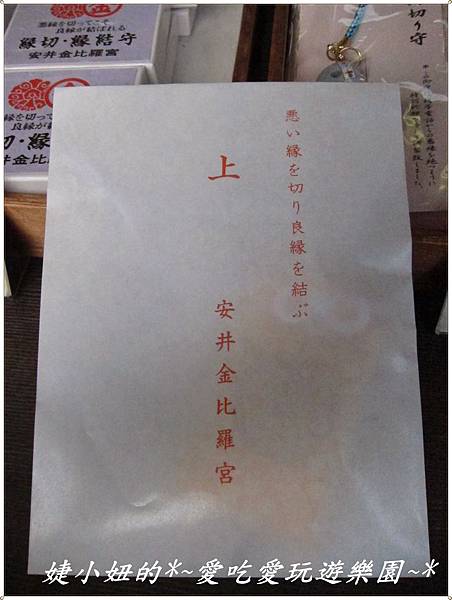 悪縁を切ってこそ
良縁が結ばれる
縁切・縁結守
安井金比羅宮
縁を切って
良縁が
切り守
悪い縁を切り良縁を結ぶ
上
安井金比羅宮
婕小妞的*~愛吃愛玩遊樂園~*